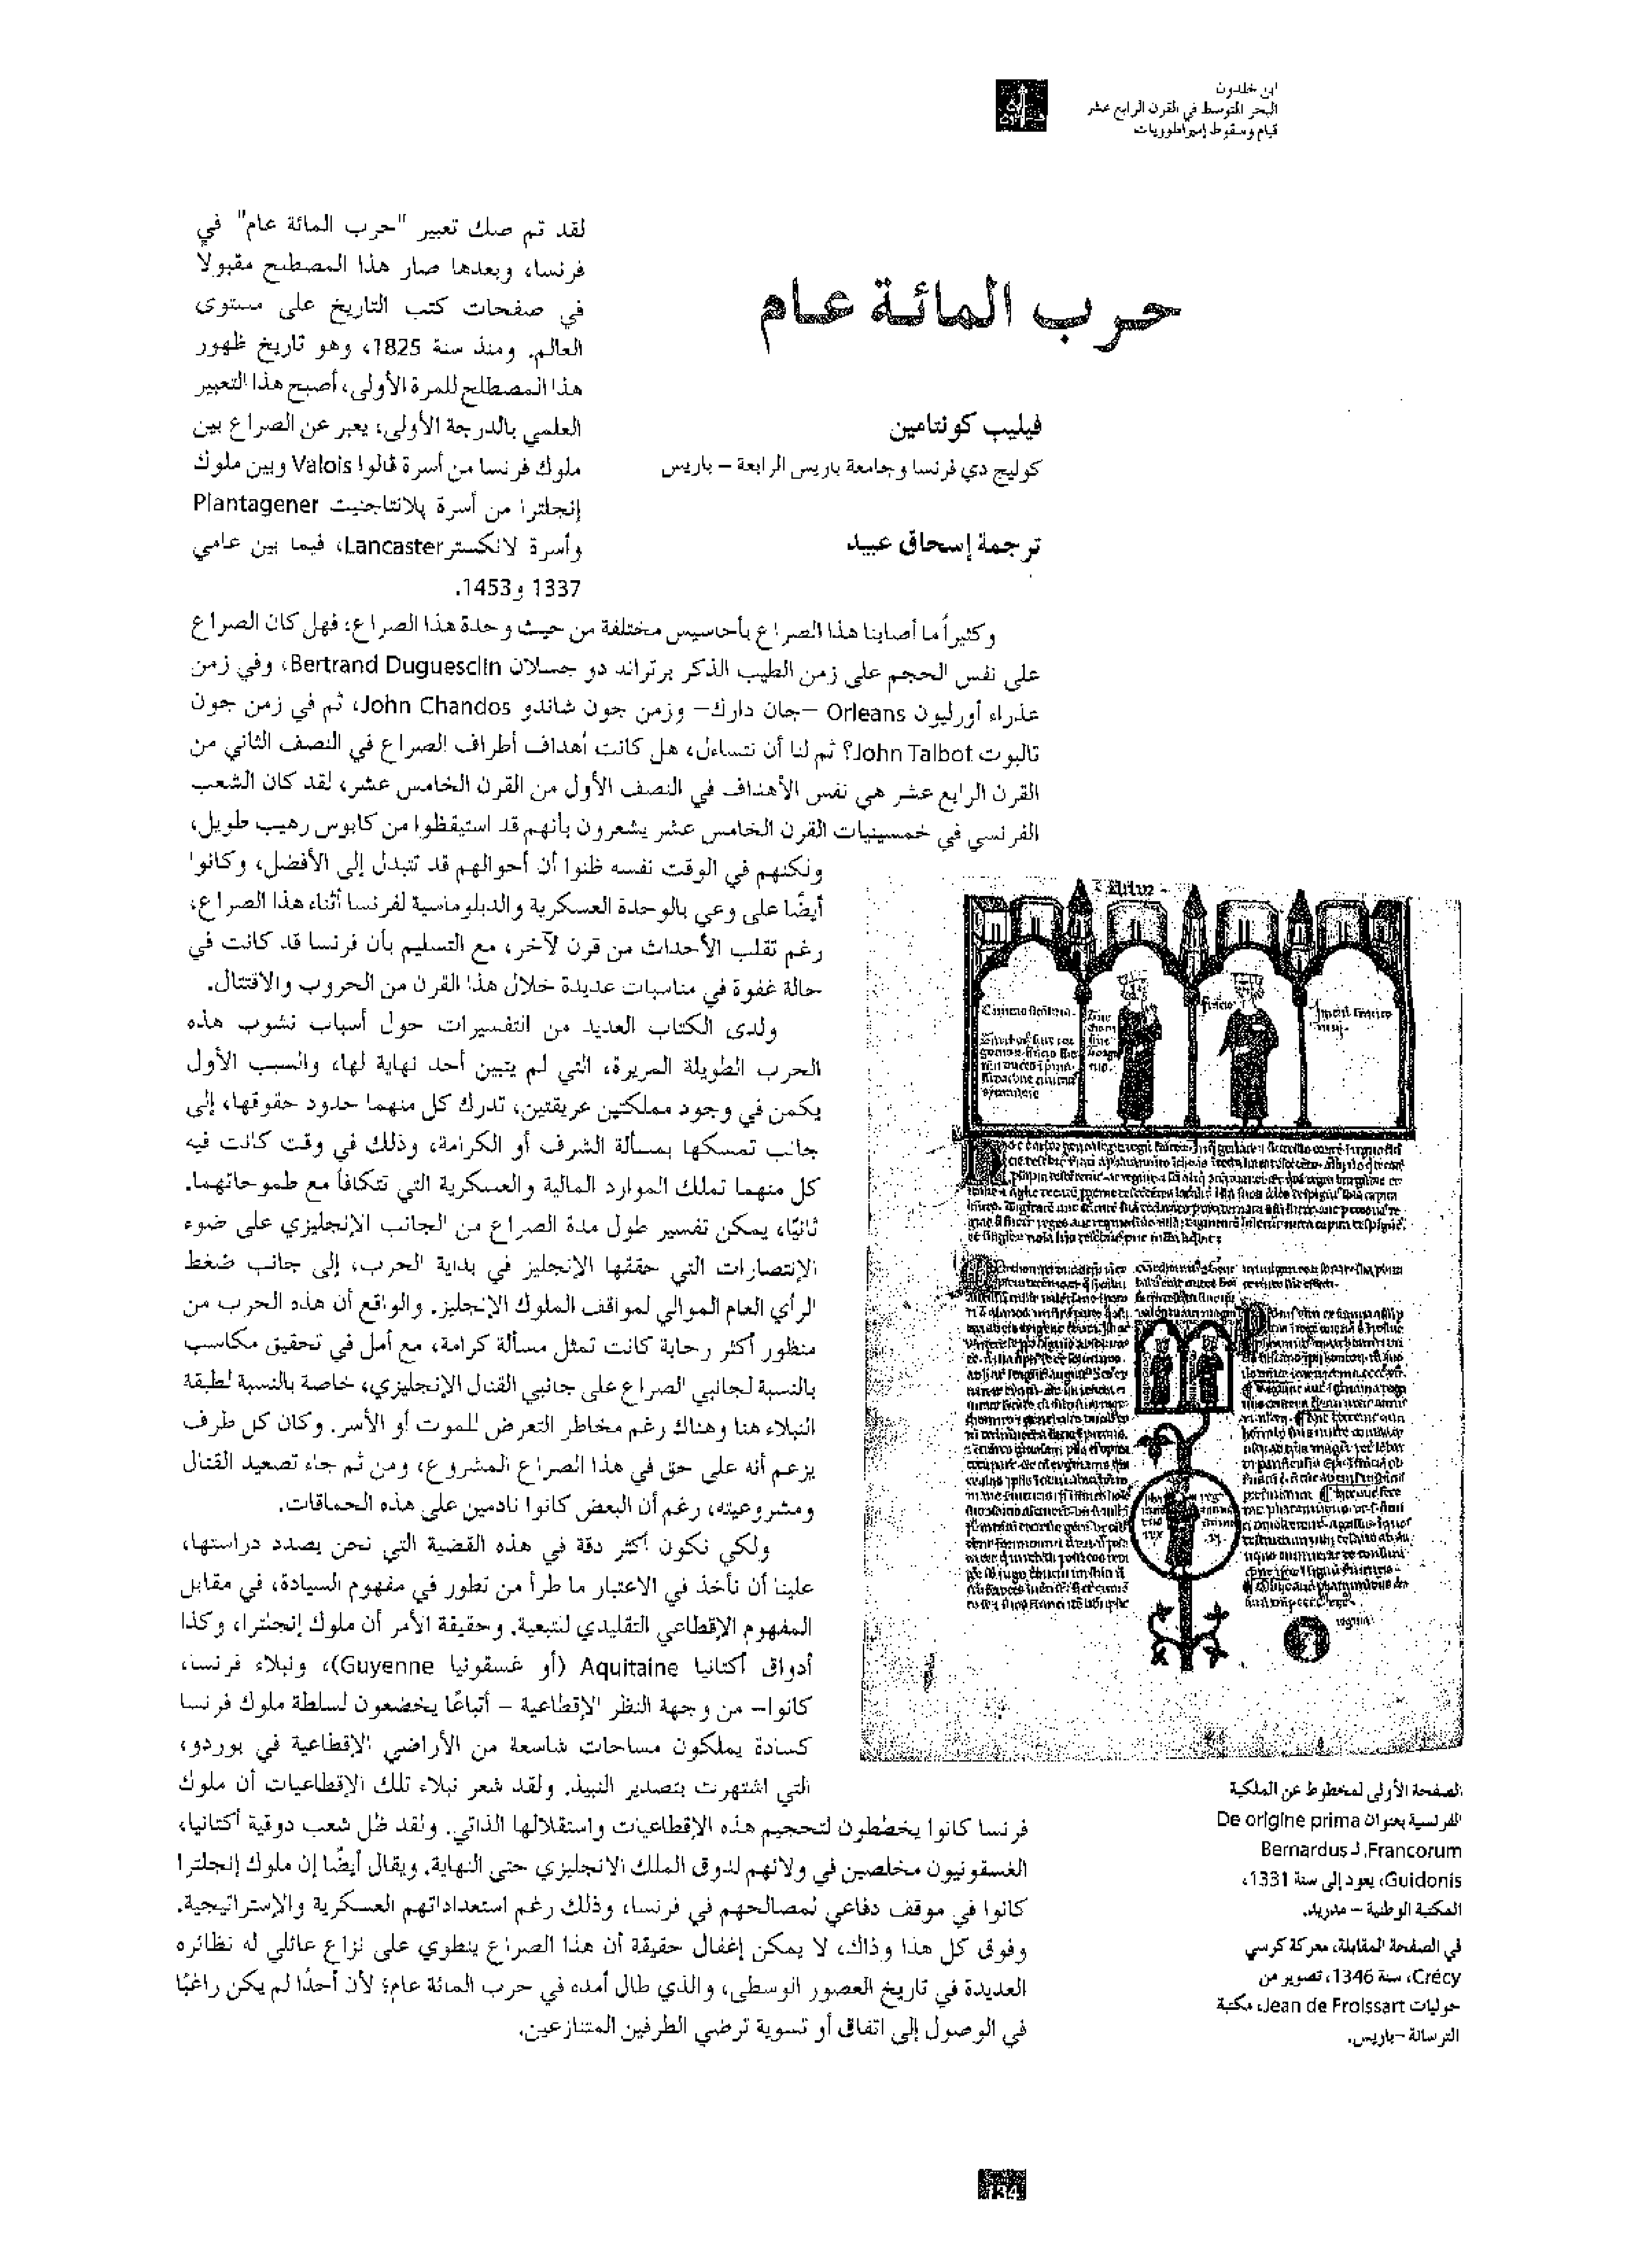 ابن خلدون
البحر المتوسط في القرن الرابع عشر
قيام وسقوط إمبراطوريات
حرب المائة عام
فيليب كونتامين
كوليج دي فرنسا وجامعة باريس الرابعة – باريس
ترجمة إسحاق عبيد
لقد تم صك تعبير "حرب المائة عام" في
فرنسا، وبعدها صار هذا المصطلح مقبولا
في صفحات كتب التاريخ على مستوى
العالم. ومنذ سنة 1825، وهو تاريخ ظهور
هذا المصطلح للمرة الأولى، أصبح هذا التعبير
العلمي بالدرجة الأولى، يعبر عن الصراع بين
ملوك فرنسا من أسرة ڤالوا Valois وبين ملوك
إنجلترا من أسرة پلانتاجنيت Plantagener
وأسرة لانكستر Lancaster، فيما بين عامي
1337 و1453.
وكثيراً ما أصابنا هذا الصراع بأحاسيس مختلفة من حيث وحدة هذا الصراع: فهل كان الصراع
على نفس الحجم على زمن الطيب الذكر برتراند دو جسلان Bertrand Duguesclin، وفي زمن
عذراء أورليون Orleans –جان دارك– وزمن جون شاندو John Chandos، ثم في زمن جون
تالبوت John Talbot؟ ثم لنا أن نتساءل، هل كانت أهداف أطراف الصراع في النصف الثاني من
القرن الرابع عشر هي نفس الأهداف في النصف الأول من القرن الخامس عشر، لقد كان الشعب
الفرنسي في خمسينيات القرن الخامس عشر يشعرون بأنهم قد استيقظوا من كابوس رهيب طويل،
ولكنهم في الوقت نفسه ظنوا أن أحوالهم قد تتبدل إلى الأفضل، وكانوا
أيضًا على وعي بالوحدة العسكرية والدبلوماسية لفرنسا أثناء هذا الصراع،
رغم تقلب الأحداث من قرن لآخر، مع التسليم بأن فرنسا قد كانت في
حالة غفوة في مناسبات عديدة خلال هذا القرن من الحروب والاقتتال.
ولدى الكتاب العديد من التفسيرات حول أسباب نشوب هذه
الحرب الطويلة المريرة، التي لم يتبين أحد نهاية لها، والسبب الأول
يكمن في وجود مملكتين عريقتين، تدرك كل منهما حدود حقوقها، إلى
جانب تمسكها بمسألة الشرف أو الكرامة، وذلك في وقت كانت فيه
كل منهما تملك الموارد المالية والعسكرية التي تتكافأ مع طموحاتهما.
ثانيًا، يمكن تفسير طول مدة الصراع من الجانب الإنجليزي على ضوء
الإنتصارات التي حققها الإنجليز في بداية الحرب، إلى جانب ضغط
الرأي العام الموالي لمواقف الملوك الإنجليز. والواقع أن هذه الحرب من
منظور أكثر رحابة كانت تمثل مسألة كرامة، مع أمل في تحقيق مكاسب
بالنسبة لجانبي الصراع على جانبي القنال الإنجليزي، خاصة بالنسبة لطبقة
النبلاء هنا وهناك رغم مخاطر التعرض للموت أو الأسر. وكان كل طرف
يزعم أنه على حق في هذا الصراع المشروع، ومن ثم جاء تصعيد القتال
ومشروعيته، رغم أن البعض كانوا نادمين على هذه الحماقات.
ولكي نكون أكثر دقة في هذه القضية التي نحن بصدد دراستها،
علينا أن نأخذ في الاعتبار ما طرأ من تطور في مفهوم السيادة، في مقابل
المفهوم الإقطاعي التقليدي للتبعية. وحقيقة الأمر أن ملوك إنجلترا، وكذا
أدواق أكتانيا Aquitaine (أو غسقونيا Guyenne)، ونبلاء فرنسا،
كانوا– من وجهة النظر الإقطاعية – أتباعًا يخضعون لسلطة ملوك فرنسا
كسادة يملكون مساحات شاسعة من الأراضي الإقطاعية في بوردو،
التي اشتهرت بتصدير النبيذ. ولقد شعر نبلاء تلك الإقطاعيات أن ملوك
فرنسا كانوا يخططون لتحجيم هذه الإقطاعيات واستقلالها الذاتي. ولقد ظل شعب دوقية أكتانيا،
الغسقونيون مخلصين في ولائهم لدوق الملك الانجليزي حتى النهاية. ويقال أيضًا إن ملوك إنجلترا
كانوا في موقف دفاعي لمصالحهم في فرنسا، وذلك رغم استعداداتهم العسكرية والإستراتيجية.
وفوق كل هذا وذاك، لا يمكن إغفال حقيقة أن هذا الصراع ينطوي على نزاع عائلي له نظائره
العديدة في تاريخ العصور الوسطى، والذي طال أمده في حرب المائة عام؛ لأن أحدًا لم يكن راغبًا
في الوصول إلى اتفاق أو تسوية ترضي الطرفين المتنازعين.
الصفحة الأولى لمخطوط عن الملكية
الفرنسية بعنوان De origine prima
Francorum، لـ Bernardus
Guidonis، يعود إلى سنة 1331،
المكتبة الوطنية – مدريد.
في الصفحة المقابلة، معركة كرسي
Crécy، سنة 1346، تصوير من
حوليات Jean de Froissart، مكتبة
الترسانة –باريس.
134